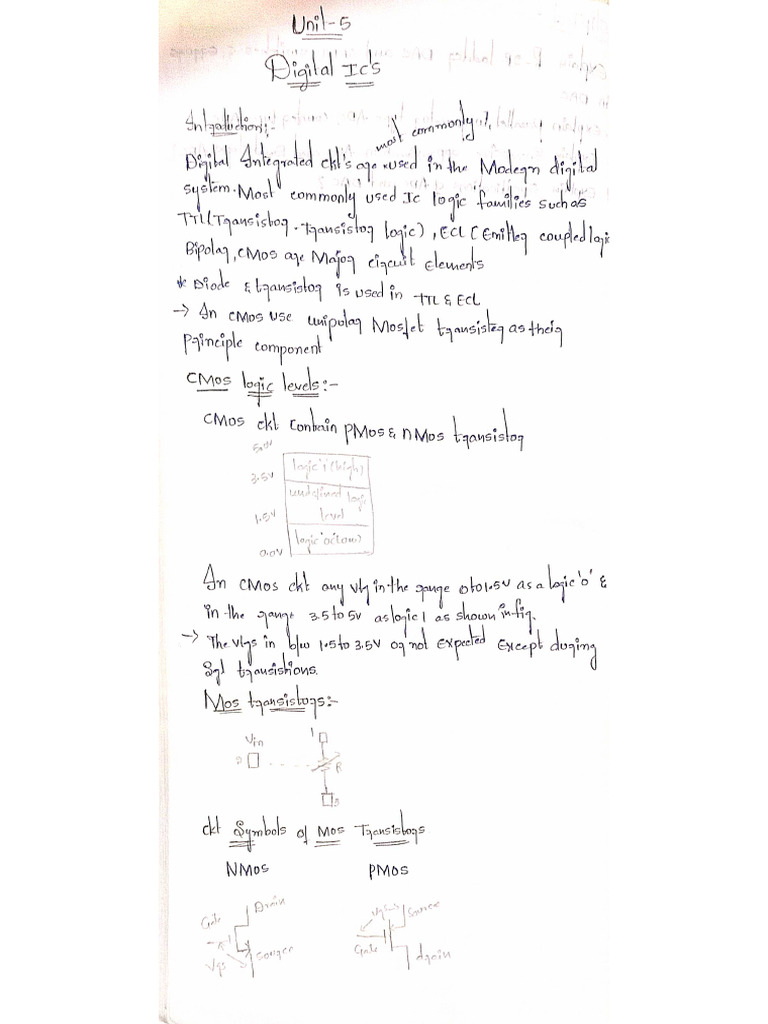 Unit-5
Digital Ic's
Introduction:-
most commonly
Digital Integrated ckt's are used in the Modern digital
system. Most commonly used Ic logic families such as
TTL (Transistor-Transistor logic), ECL (Emitter coupled logic
Bipolar, CMOS are Major circuit Elements
* Diode & transistor is used in TTL & ECL
→ In CMOS use unipolar Mosfet transister as their
Principle component
CMOS logic levels:-
CMOS ckt Contain PMOS & nMOS transistor
3.5V
logic '1' (high)
undefined logic
level
1.5V
logic '0' (Low)
0.0V
In CMOS ckt any vlg in the range 0 to 1.5V as a logic '0' &
in the range 3.5 to 5V as logic 1 as shown in fig.
→ The vlgs in b/w 1.5 to 3.5V or not expected Except during
Sgl transistions.
Mos transistors:-
Vin
R
ckt Symbols of Mos Transistors
NMOS PMOS
Drain
Gate
Source
Vgs
Source
Gate
drain